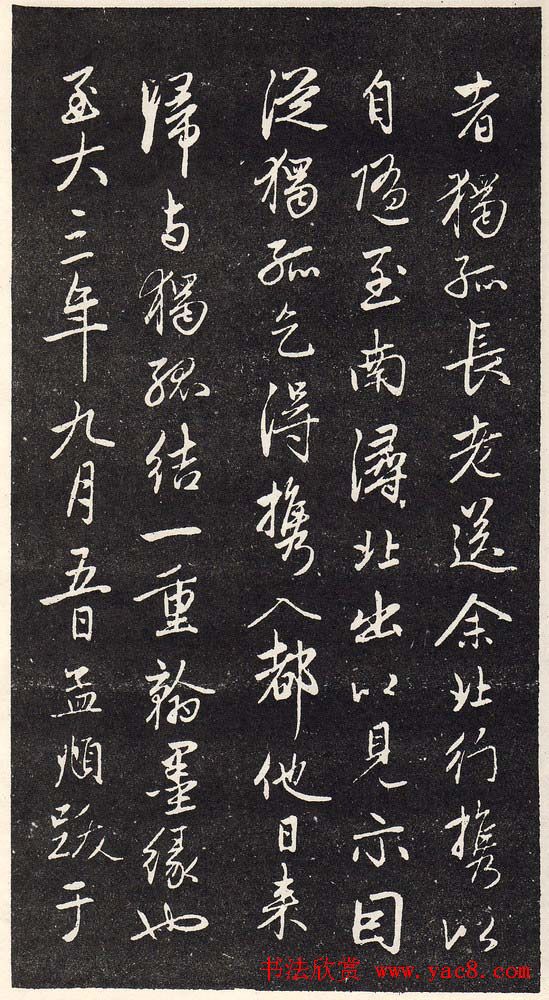 者獨孤長老送余北行攜以
自隨至南潯北出以見示因
從獨孤乞得攜入都他日来
歸与獨孤結一重翰墨緣也
至大三年九月五日孟頫跋于
书法欣赏 www.yac8.com